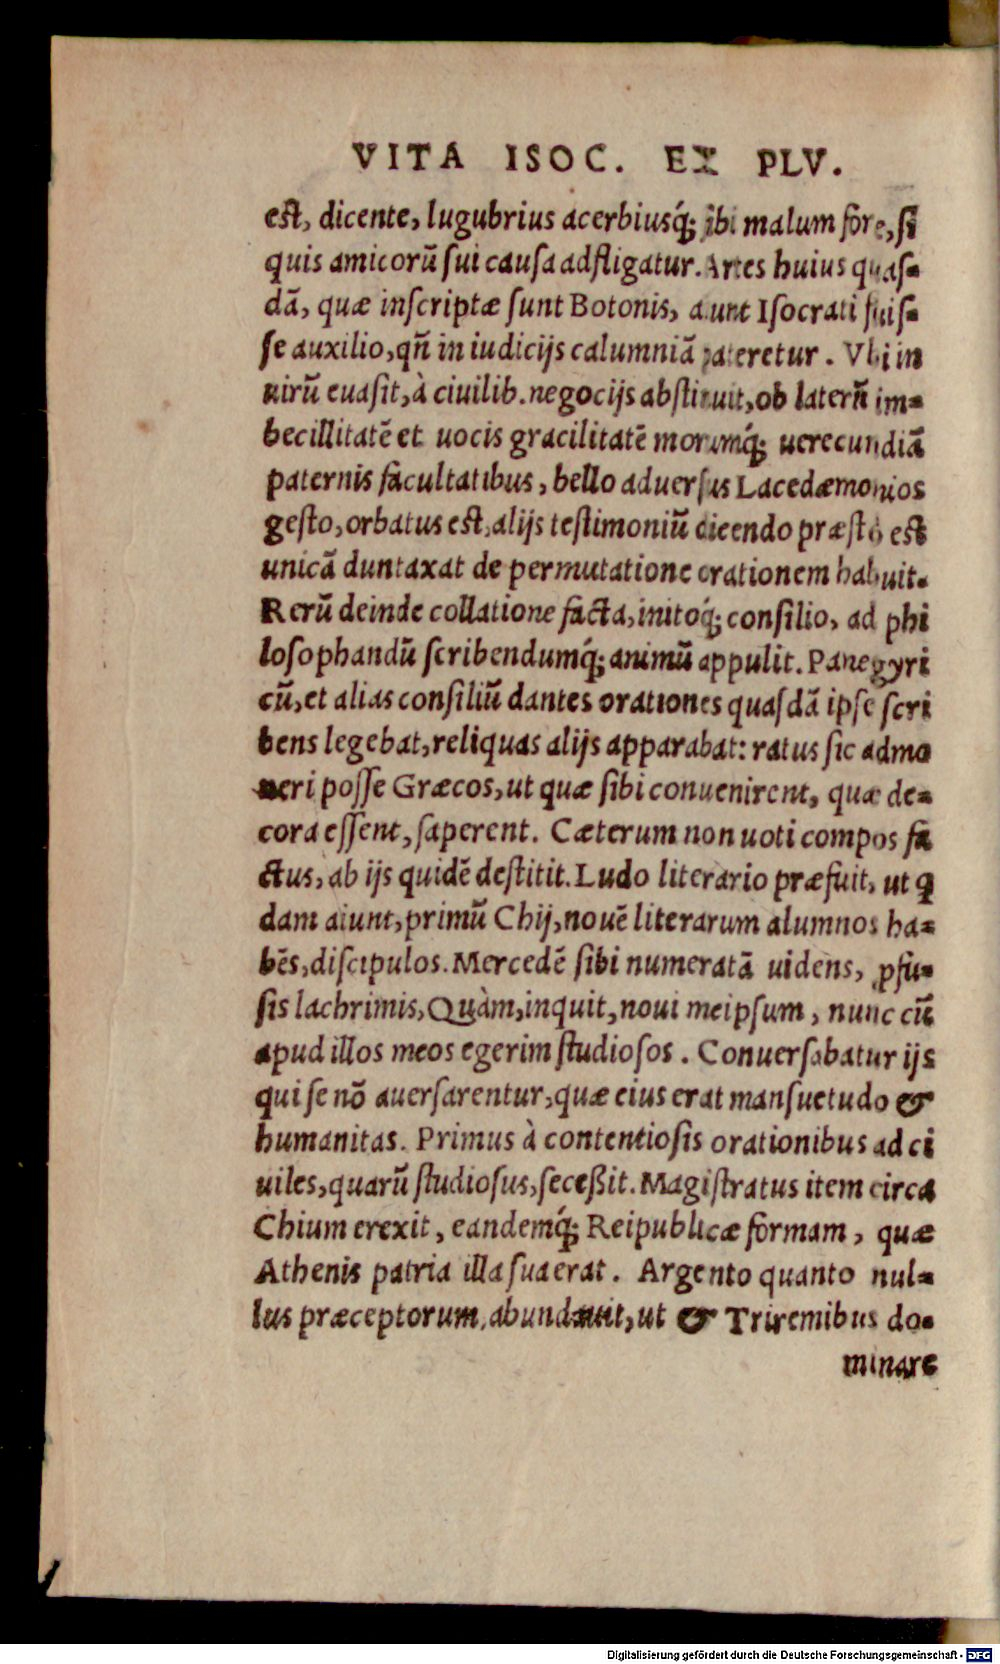 VITA ISOC. EX PLV.
est, dicente, lugubrius acerbiusq́; sibi malum fore, si
quis amicorũ sui causa adfligatur. Artes huius quas-
dã, quæ inscriptæ sunt Botonis, aiunt Isocrati fuis-
se auxilio, qñ in iudicijs calumniã pateretur. Vbi in
uirũ euasit, à ciuilib. negocijs abstinuit, ob laterũ im-
becillitatẽ et uocis gracilitatẽ morumq́; uerecundiã
paternis facultatibus, bello aduersus Lacedæmonios
gesto, orbatus est, alijs testimoniũ dicendo præsto est
unicã duntaxat de permutatione orationem habuit.
Rerũ deinde collatione facta, initoq́; consilio, ad phi
losophandũ scribendumq́; animũ appulit. Panegyri
cũ, et alias consiliũ dantes orationes quasdã ipse scri
bens legebat, reliquas alijs apparabat: ratus sic admo
neri posse Græcos, ut quæ sibi conuenirent, quæ de-
cora essent, saperent. Cæterum non uoti compos fa
ctus, ab ijs quidẽ destitit. Ludo literario præfuit, ut q
dam aiunt, primũ Chij, nouẽ literarum alumnos ha-
bẽs, discipulos. Mercedẽ sibi numeratã uidens, ꝓfu-
sis lachrimis, Quàm, inquit, noui meipsum, nunc cũ
apud illos meos egerim studiosos. Conuersabatur ijs
qui se nõ auersarentur, quæ eius erat mansuetudo &
humanitas. Primus à contentiosis orationibus ad ci
uiles, quarũ studiosus, seceßit. Magistratus item circa
Chium erexit, eandemq́; Reipublicæ formam, quæ
Athenis patria illa sua erat. Argento quanto nul-
lus præceptorum, abundauit, ut & Triremibus do-
minare
Digitalisierung gefördert durch die Deutsche Forschungsgemeinschaft - DFG